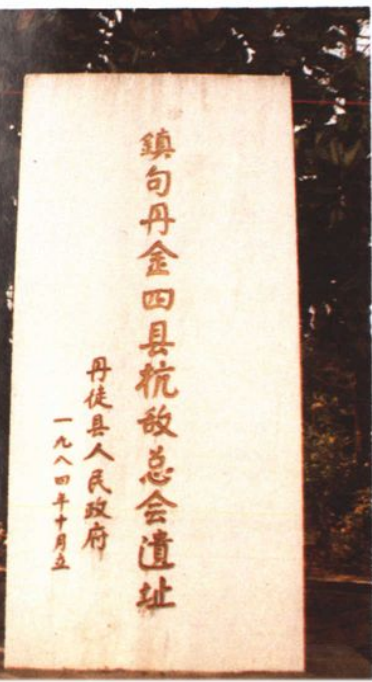 鎮句丹金四县抗敌总会遺址
丹徒县人民政府
一九八四年十月立